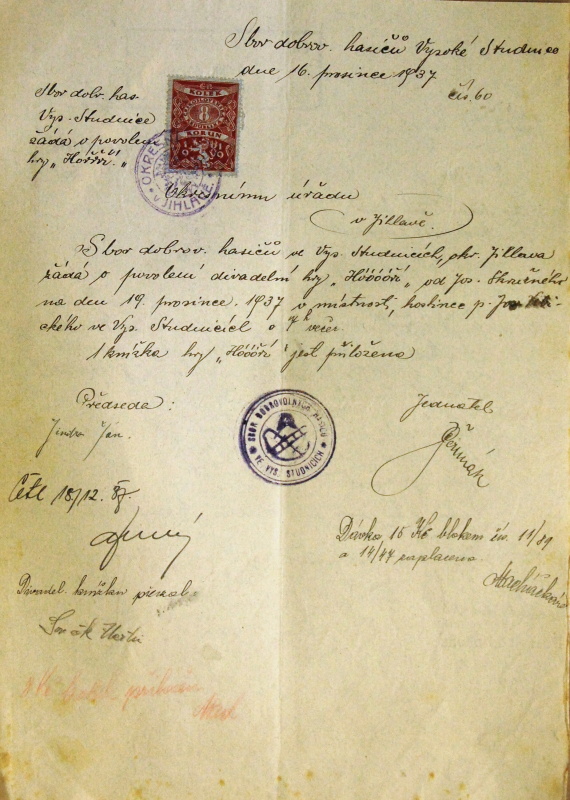 Sbor dobrov. hasičů Vysoké Studnice
dne 16. prosince 1937
čís. 60
Sbor dobr. has.
Vys. Studnice
žádá o povolení
hry „Hóřří.“
KOLEK
8
KORUN
Okresnímu úřadu
v Jihlavě.
Sbor dobrov. hasičů ve Vys. Studnicích, okr. Jihlava
žádá o povolení divadelní hry „Hóóóří“ od Jos. Skružného
na den 19. prosince 1937 v místnosti, hostince p. Jos.
ve Vys. Studnicích o 7 h večer.
1 knížka hry „Hóóóří“ jest přiložena
Předseda:
Jindra Jan.
Jednatel
SBOR DOBROVOLNÝCH HASIČŮ
VE VYS. STUDNICÍCH
Četl 18/12. 37.
Dávka 15 Kč blokem čís. 11/81
a 14/47 zaplacena.
Divadel. knížku